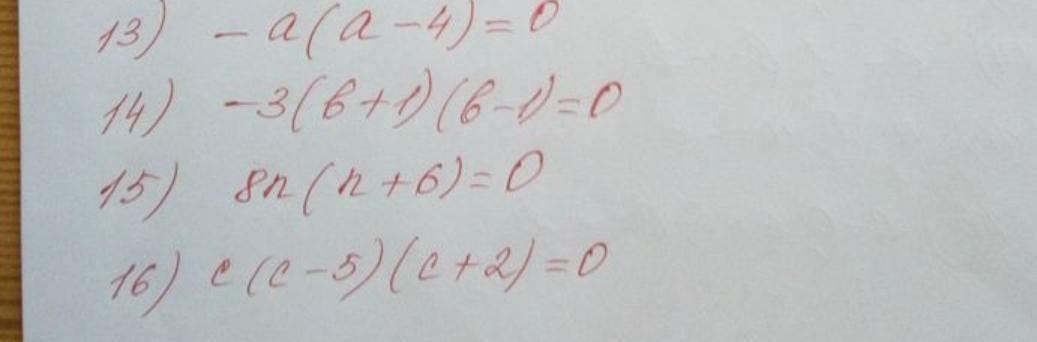 13) -a(a-4)=0
14) -3(b+1)(b-1)=0
15) 8n(n+6)=0
16) c(c-5)(c+2)=0